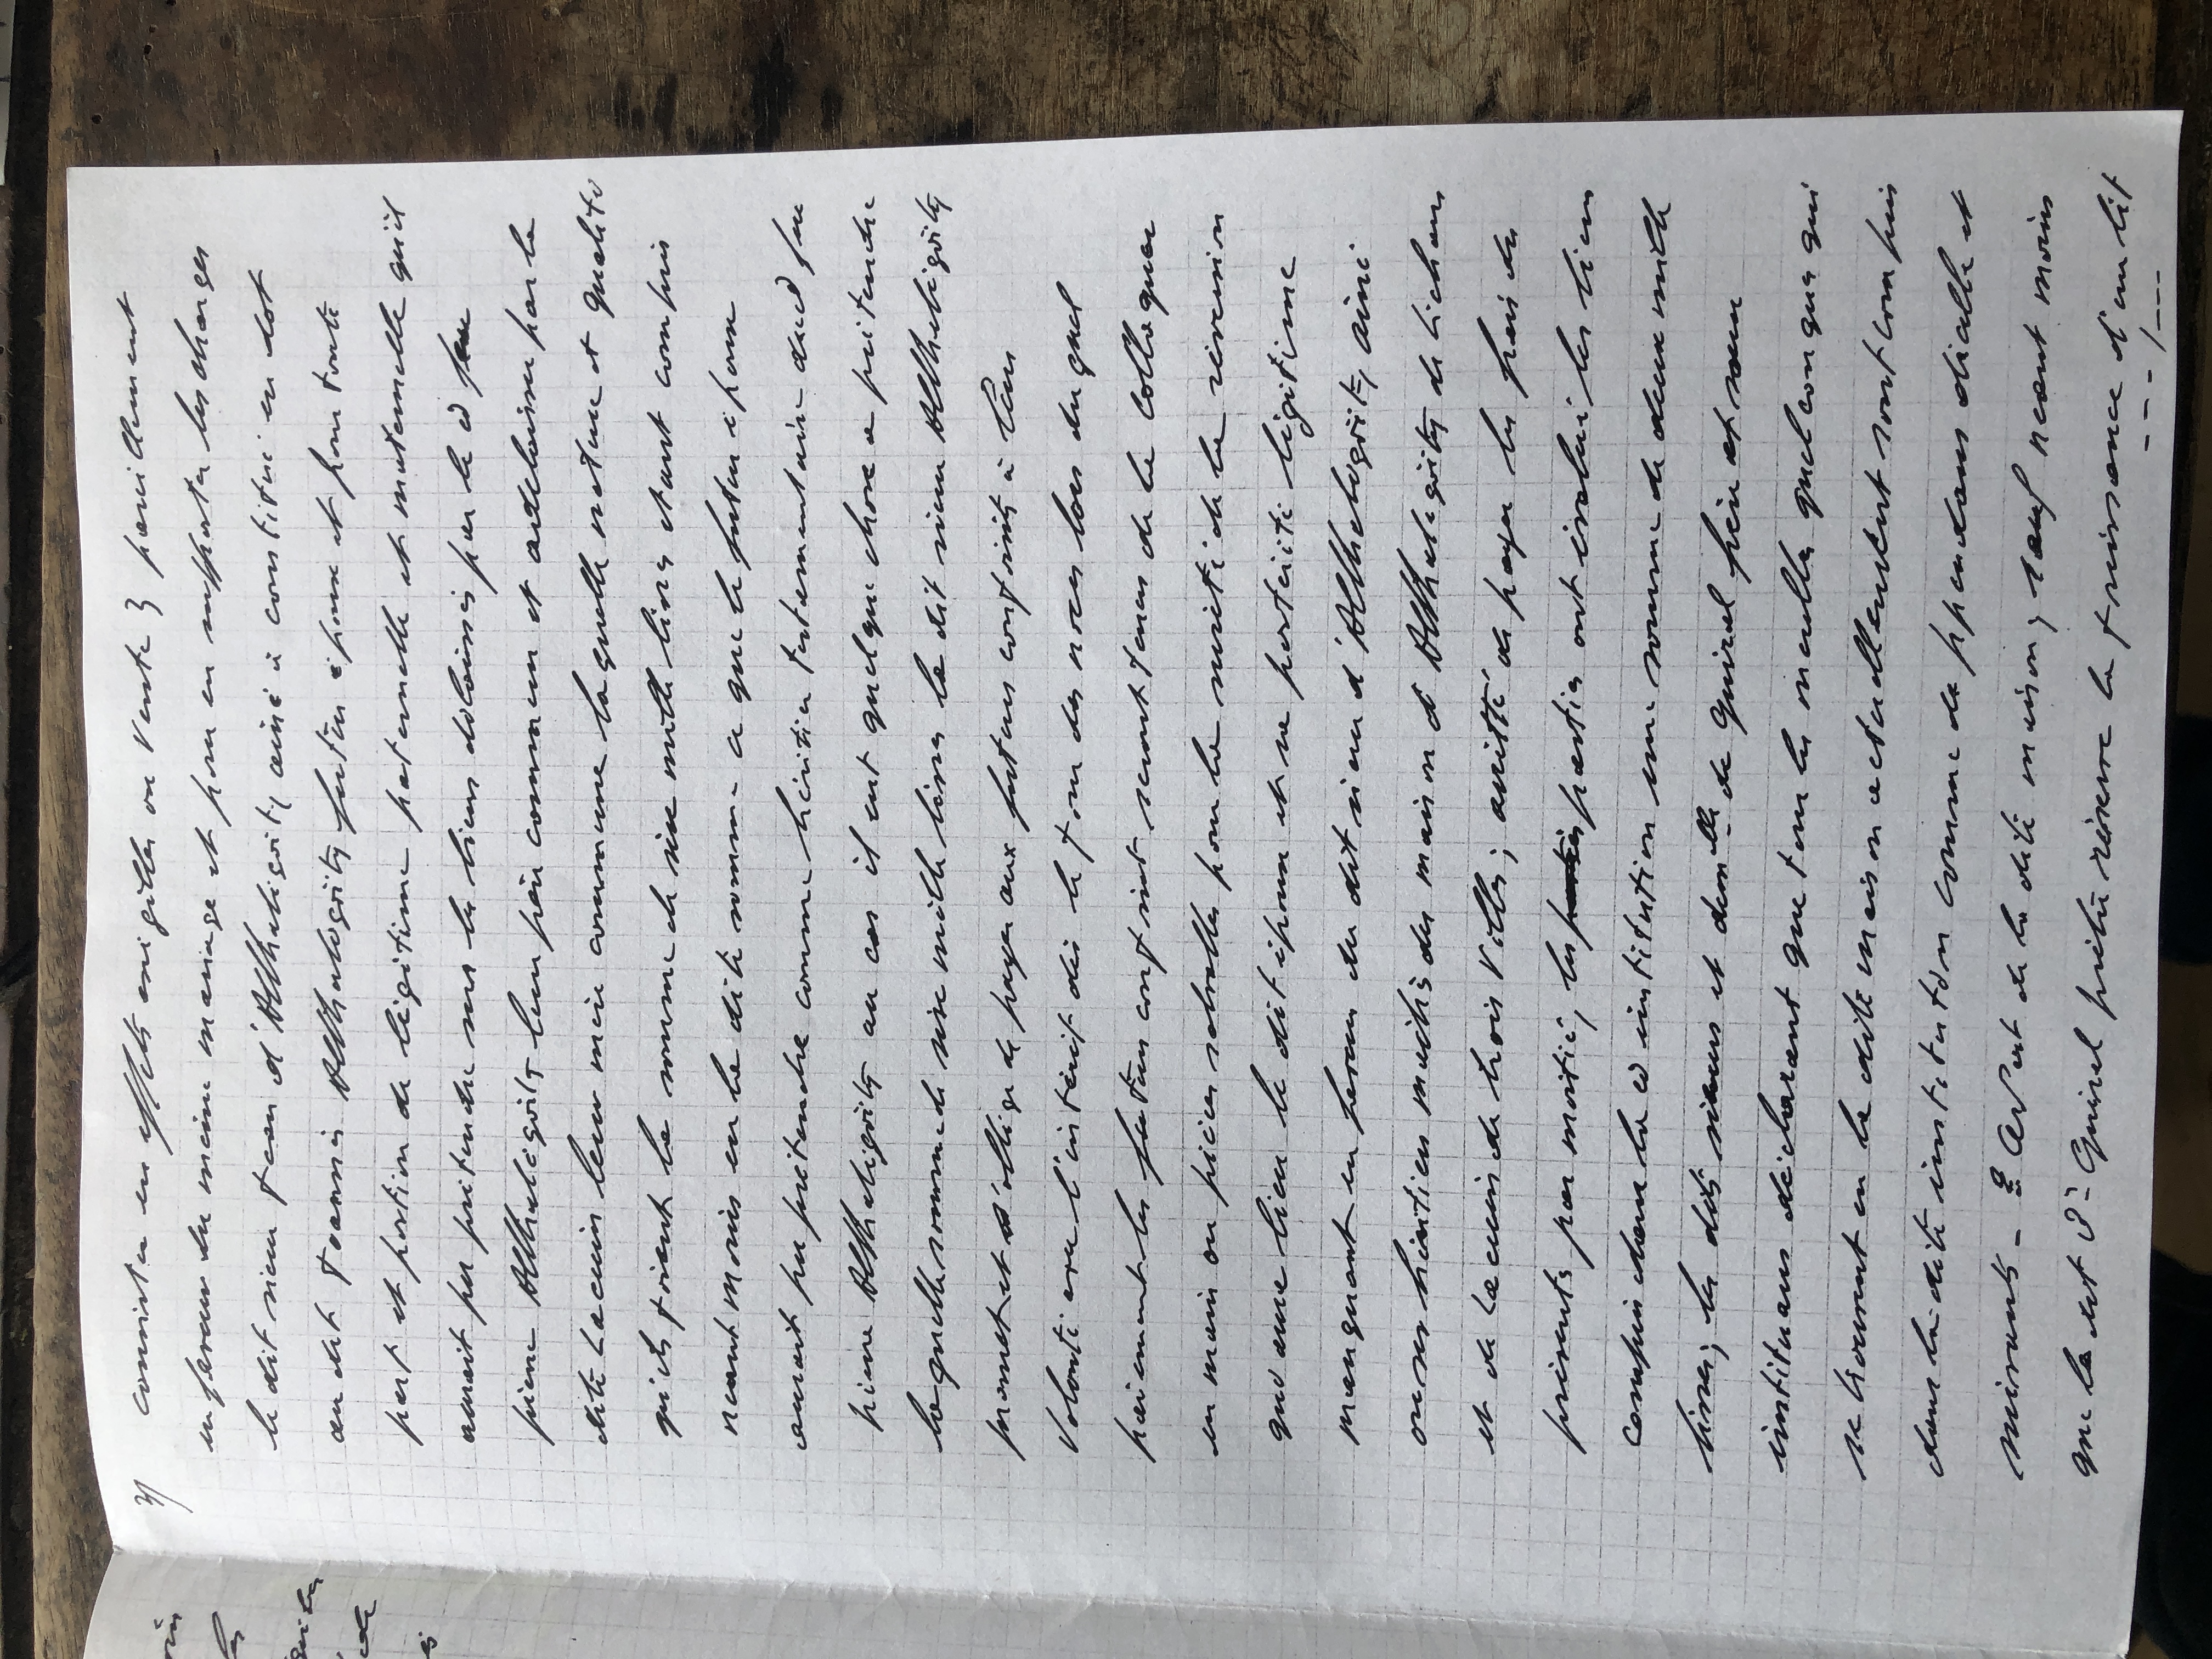 3/ consister en effets exigibles ou vente 3 pareillement
en faveur du même mariage et pour en supporter les charges
le dit sieur Jean d'Althabegoïty, aîné à constitué en dot
au dit Joannis Althabegoïty futur époux et pour toute
part et portion de légitime paternelle et maternelle qu'il
aurait pu prétendre sur les biens délaissés par le d feu
pierre Althabégoïty leur père commun et par la
dite Laccuin leur mère commune la quelle nature et qualité
qu'ils soient la somme de six mille livres etant compris
neant moins en la dite somme ce que le futur époux
aurait pu pretendre comme héritier testamentaire dud feu
pierre Althabegoïty au cas il eut quelque chose a pretendre
laquelle somme de six mille livres le dit sieur Althabégoïty
promet et s'oblige de payer aux futurs conjoints à leur
volonté avec l'intérêt dès le jour des noces lors du quel
paiement les futurs conjoints seront tenus de la colloquer
en main ou pièces solvables pour la sureté de la réversion
qui aura lieu le dit époux et sa postérité légitime
manquant en faveur du dit sieur d'Althabegoïty, ainé
ou ses héritiers maîtres des maison d'Althabegoïty de Lichans
et de Laccuin de trois Villes; de payer les frais des
présents par moitié; les parties ont évalué les biens
compris dans la d institution une somme de deux mille
livres; les dits sieurs et dam.lle de Quirel frère et soeur
instituans déclarant que tous les meubles quelconques qui
se trouvent en la dite maison actuellement sont compris
dans la dite institution comme dépendans d'icelle et
suivants - de la dite maison; sauf neant moins
que le dit Sr Quirel prêtre réserve la jouissance d'un lit
- - - / - - -